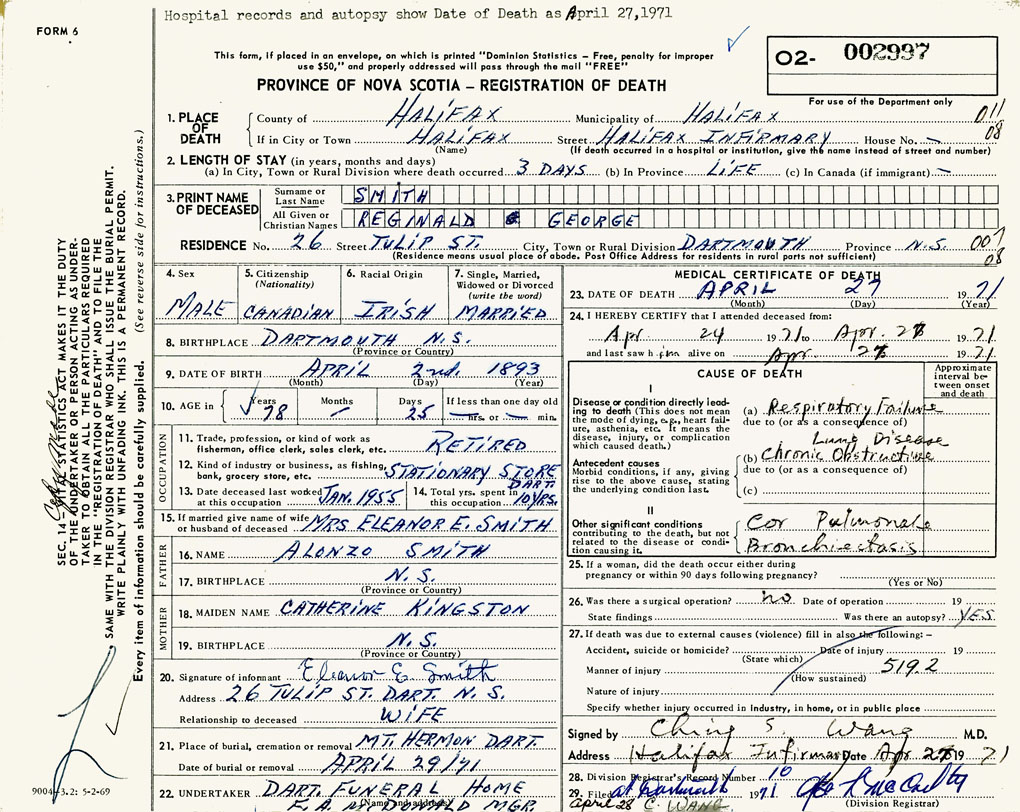 Hospital records and autopsy show Date of Death as April 27,1971
FORM 6
This form, if placed in an envelope, on which is printed "Dominion Statistics - Free, penalty for improper
use $50," and properly addressed will pass through the mail "FREE"
02- 002997
For use of the Department only
PROVINCE OF NOVA SCOTIA – REGISTRATION OF DEATH
1. PLACE OF DEATH
County of HALIFAX Municipality of HALIFAX 011
If in City or Town HALIFAX Street HALIFAX INFIRMARY House No. — 08
(Name) (If death occurred in a hospital or institution, give the name instead of street and number)
2. LENGTH OF STAY (in years, months and days)
(a) In City, Town or Rural Division where death occurred 3 DAYS (b) In Province LIFE (c) In Canada (if immigrant) —
3. PRINT NAME OF DECEASED
Surname or Last Name SMITH
All Given or Christian Names REGINALD GEORGE
RESIDENCE No. 26 Street TULIP ST. City, Town or Rural Division DARTMOUTH Province N.S. 007
(Residence means usual place of abode. Post Office Address for residents in rural parts not sufficient) 08
4. Sex MALE
5. Citizenship (Nationality) CANADIAN
6. Racial Origin IRISH
7. Single, Married, Widowed or Divorced (write the word) MARRIED
8. BIRTHPLACE DARTMOUTH N.S.
(Province or Country)
9. DATE OF BIRTH APRIL 2nd. 1893
(Month) (Day) (Year)
10. AGE in Years 78 Months — Days 25 If less than one day old
— hrs. or — min.
OCCUPATION
11. Trade, profession, or kind of work as
fisherman, office clerk, sales clerk, etc. RETIRED
12. Kind of industry or business, as fishing,
bank, grocery store, etc. STATIONARY STORE
DART.
13. Date deceased last worked at this occupation JAN. 1955
14. Total yrs. spent in this occupation 10 YRS.
15. If married give name of wife or husband of deceased MRS ELEANOR E. SMITH
FATHER
16. NAME ALONZO SMITH
17. BIRTHPLACE N.S.
(Province or Country)
MOTHER
18. MAIDEN NAME CATHERINE KINGSTON
19. BIRTHPLACE N.S.
(Province or Country)
20. Signature of informant Eleanor E. Smith
Address 26 TULIP ST. DART. N.S.
Relationship to deceased WIFE
21. Place of burial, cremation or removal MT. HERMON DART.
Date of burial or removal APRIL 29/71
22. UNDERTAKER DART. FUNERAL HOME
(Name and address)
MGR.
MEDICAL CERTIFICATE OF DEATH
23. DATE OF DEATH APRIL 27 1971
(Month) (Day) (Year)
24. I HEREBY CERTIFY that I attended deceased from:
Apr. 24 1971 to Apr. 27 1971
and last saw him alive on Apr. 27 1971
CAUSE OF DEATH
Approximate interval between onset and death
I
Disease or condition directly leading to death (This does not mean the mode of dying, e.g., heart failure, asthenia, etc. It means the disease, injury, or complication which caused death.)
(a) Respiratory Failure
due to (or as a consequence of)
Lung Disease
Antecedent causes
Morbid conditions, if any, giving rise to the above cause, stating the underlying condition last.
(b) Chronic Obstructive
due to (or as a consequence of)
(c)
II
Other significant conditions
contributing to the death, but not related to the disease or condition causing it.
Cor Pulmonale
Bronchiectasis
25. If a woman, did the death occur either during
pregnancy or within 90 days following pregnancy?
(Yes or No)
26. Was there a surgical operation? no Date of operation 19
State findings Was there an autopsy? YES
27. If death was due to external causes (violence) fill in also the following: –
Accident, suicide or homicide? Date of injury 19
(State which)
Manner of injury 519.2
(How sustained)
Nature of injury
Specify whether injury occurred in Industry, in home, or in public place
Signed by Ching S. Wang M.D.
Address Halifax Infirmary Date Apr 27 1971
28. Division Registrar's Record Number 10
29. Filed at Dartmouth 1971
April 28 C. WANG
(Division Registrar)
SEC. 14 – STATISTICS ACT MAKES IT THE DUTY
OF THE UNDERTAKER OR PERSON ACTING AS UNDER-
TAKER TO OBTAIN ALL THE PARTICULARS REQUIRED
IN THE "REGISTRATION OF DEATH" AND TO FILE THE
SAME WITH THE DIVISION REGISTRAR WHO SHALL ISSUE THE BURIAL PERMIT.
WRITE PLAINLY WITH UNFADING INK. THIS IS A PERMANENT RECORD.
Every item of information should be carefully supplied. (See reverse side for instructions.)
9004-3.2: 5-2-69